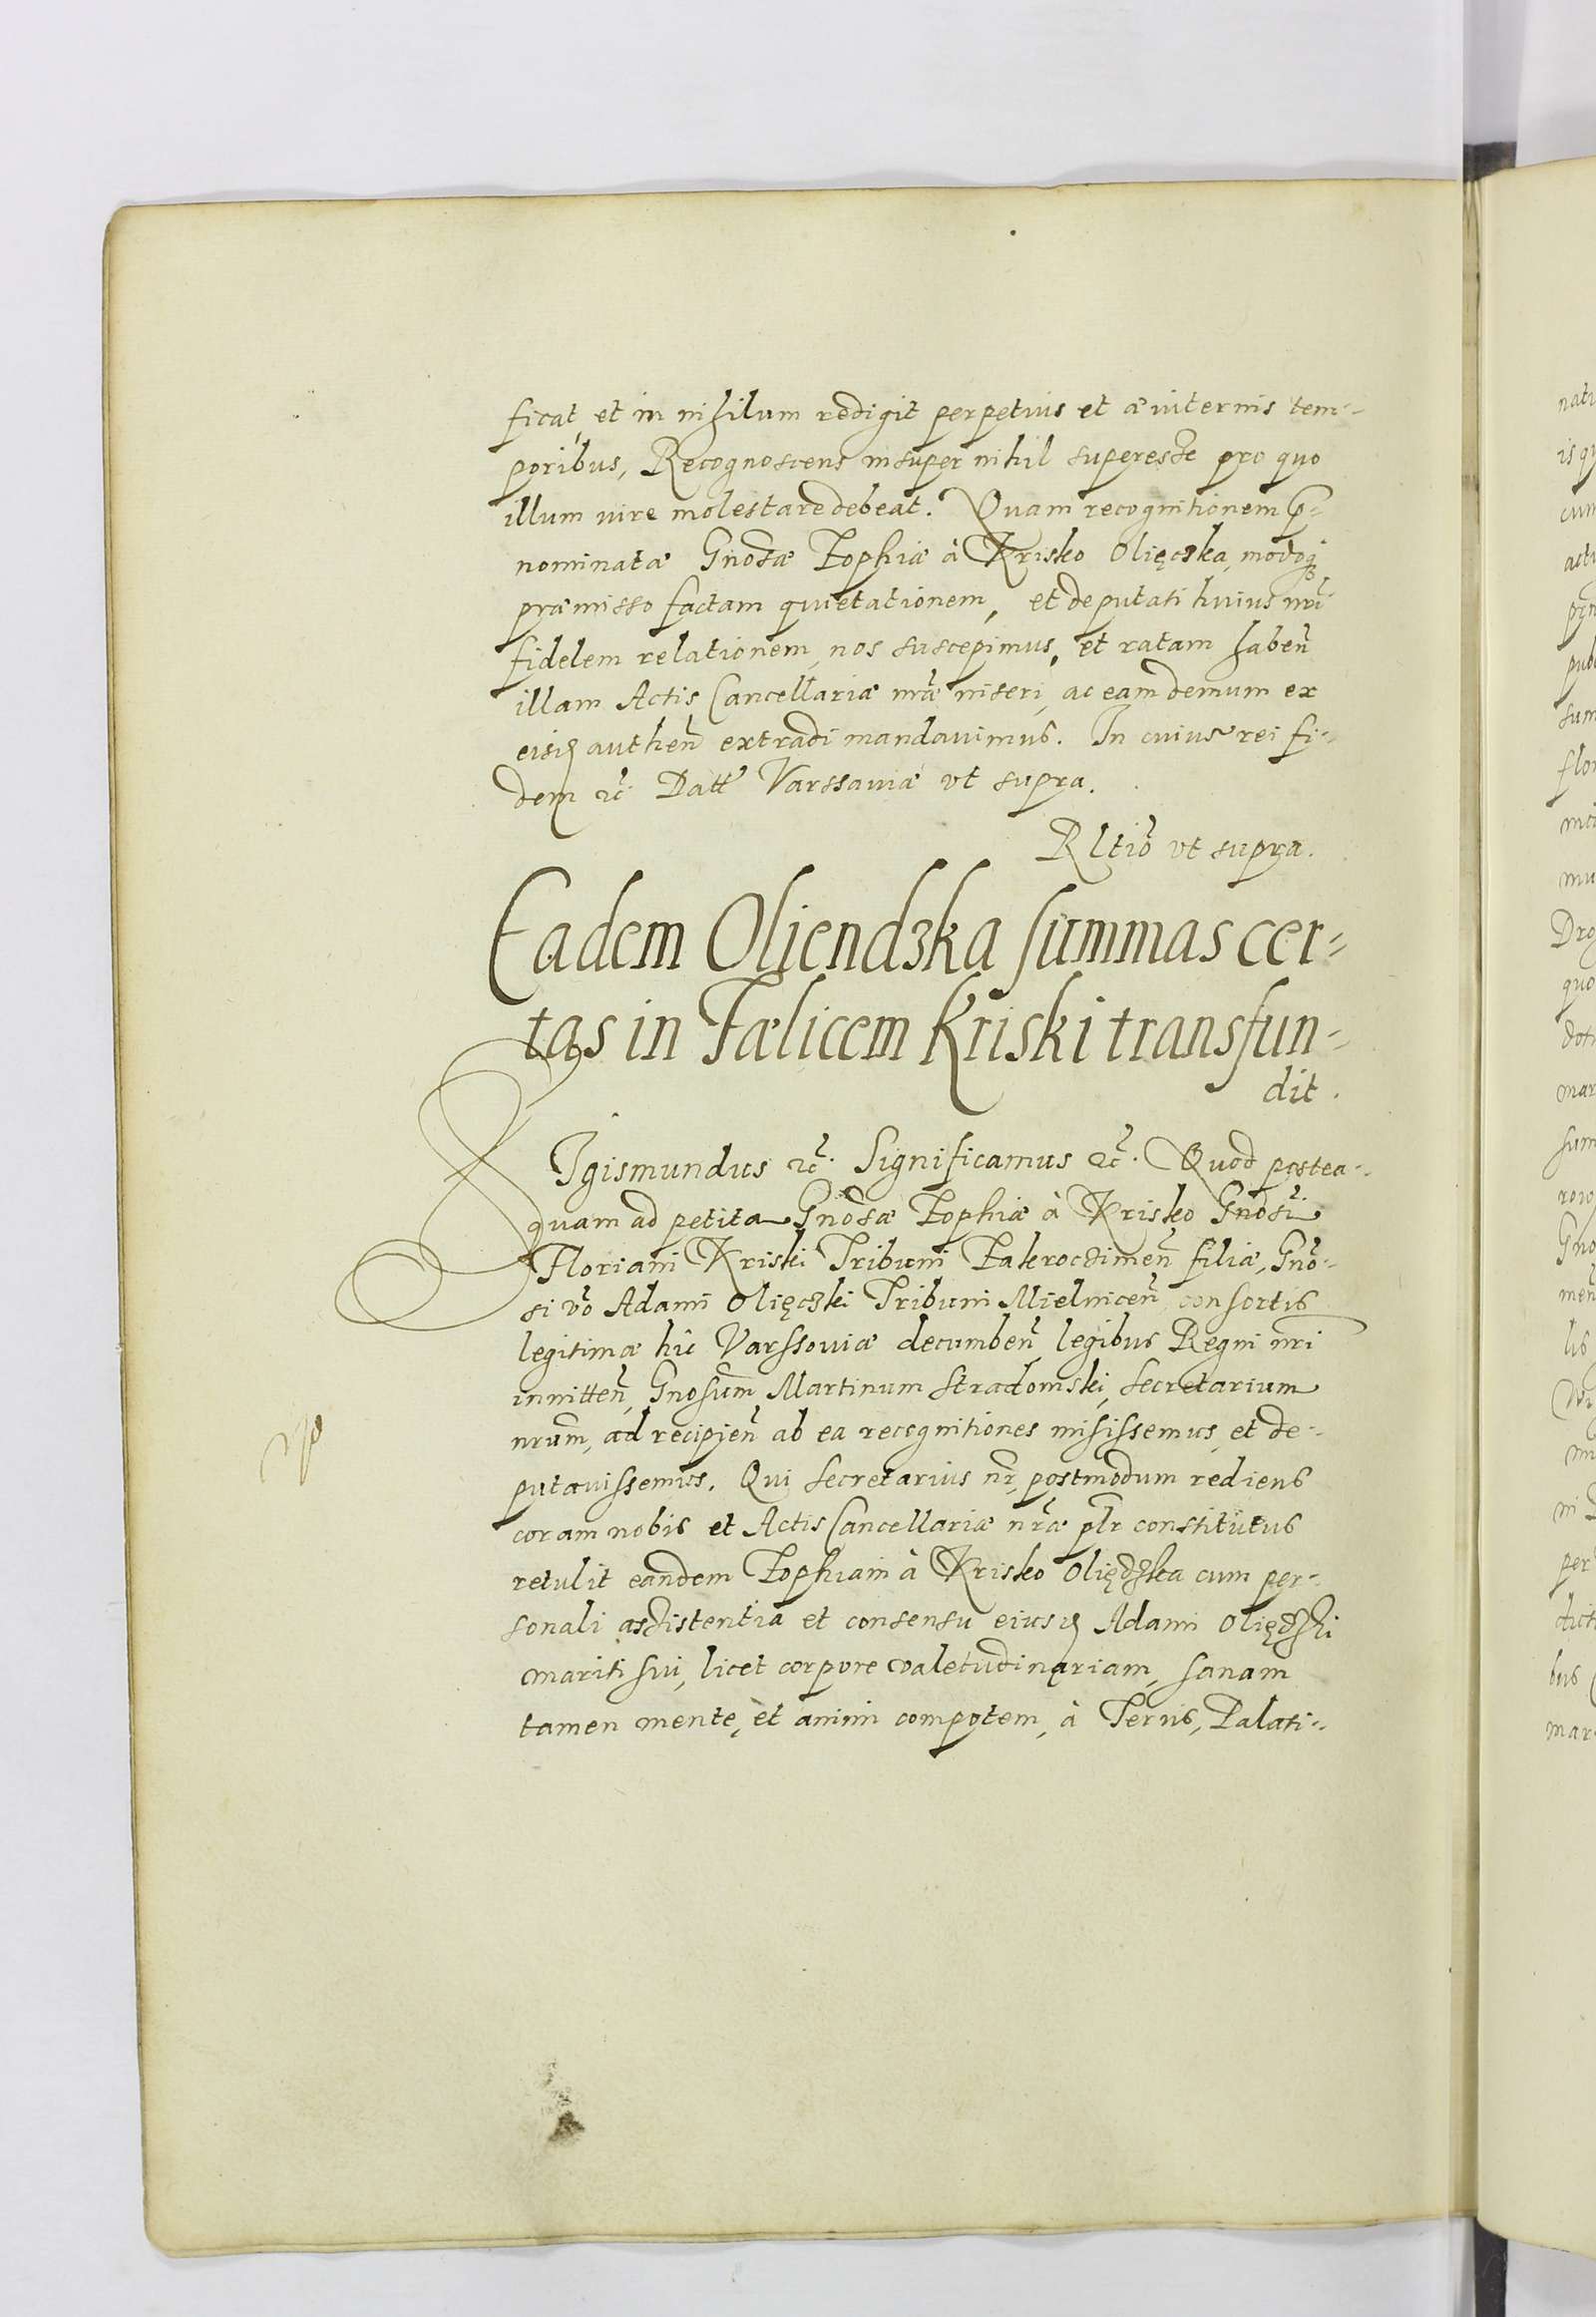 ficat, et in nihilum redigit perpetuis et æviternis tem-
poribus, Recognoscens insuper nihil superesse pro quo
illum iure molestare debeat. Quam recognitionem p̄-
nominatæ Gnosæ Zophiæ à Krisko Olięczka, modoq́
præmisso factam quietationem, et deputati huius nrī
fidelem relationem, nos suscepimus, et ratam habeñ
illam Actis Cancellariæ nræ inseri, ac eam demum ex
eisd autheñ extradi mandavimus. In cuius rei fi-
dem ꝛc̃. Datt Varssaviæ vt supra.
Rltiõ vt supra.
Eadem Oliendzka summas cer-
tas in Fælicem Kriski transfun-
dit.
SIgismundus ꝛc̃. Significamus ꝛc̃. Quod postea-
quam ad petita Gnosæ Zophiæ à Krisko Gnosi
Floriani Kriski Tribuni Zakroczimeñ filiæ, Gno-
si vo Adami Olięczki Tribuni Mielniceñ consortis
legitimæ hic Varssoviæ decumbeñ legibus Regni nri
innitteñ, Gnosum Martinum Stradomski, Secretarium
nrum, ad recipieñ ab ea recognitiones misissemus, et de-
putavissemus. Qui Secretarius nr, postmodum rediens
coram nobis et Actis Cancellariæ nræ plr constitutus
retulit eandem Zophiam à Krisko Oliędzka cum per-
sonali assistentia et consensu eiusd Adami Oliędzki
mariti sui, licet corpore valetudinariam, sanam
tamen mente, et animi compotem, à Terris, Palati-